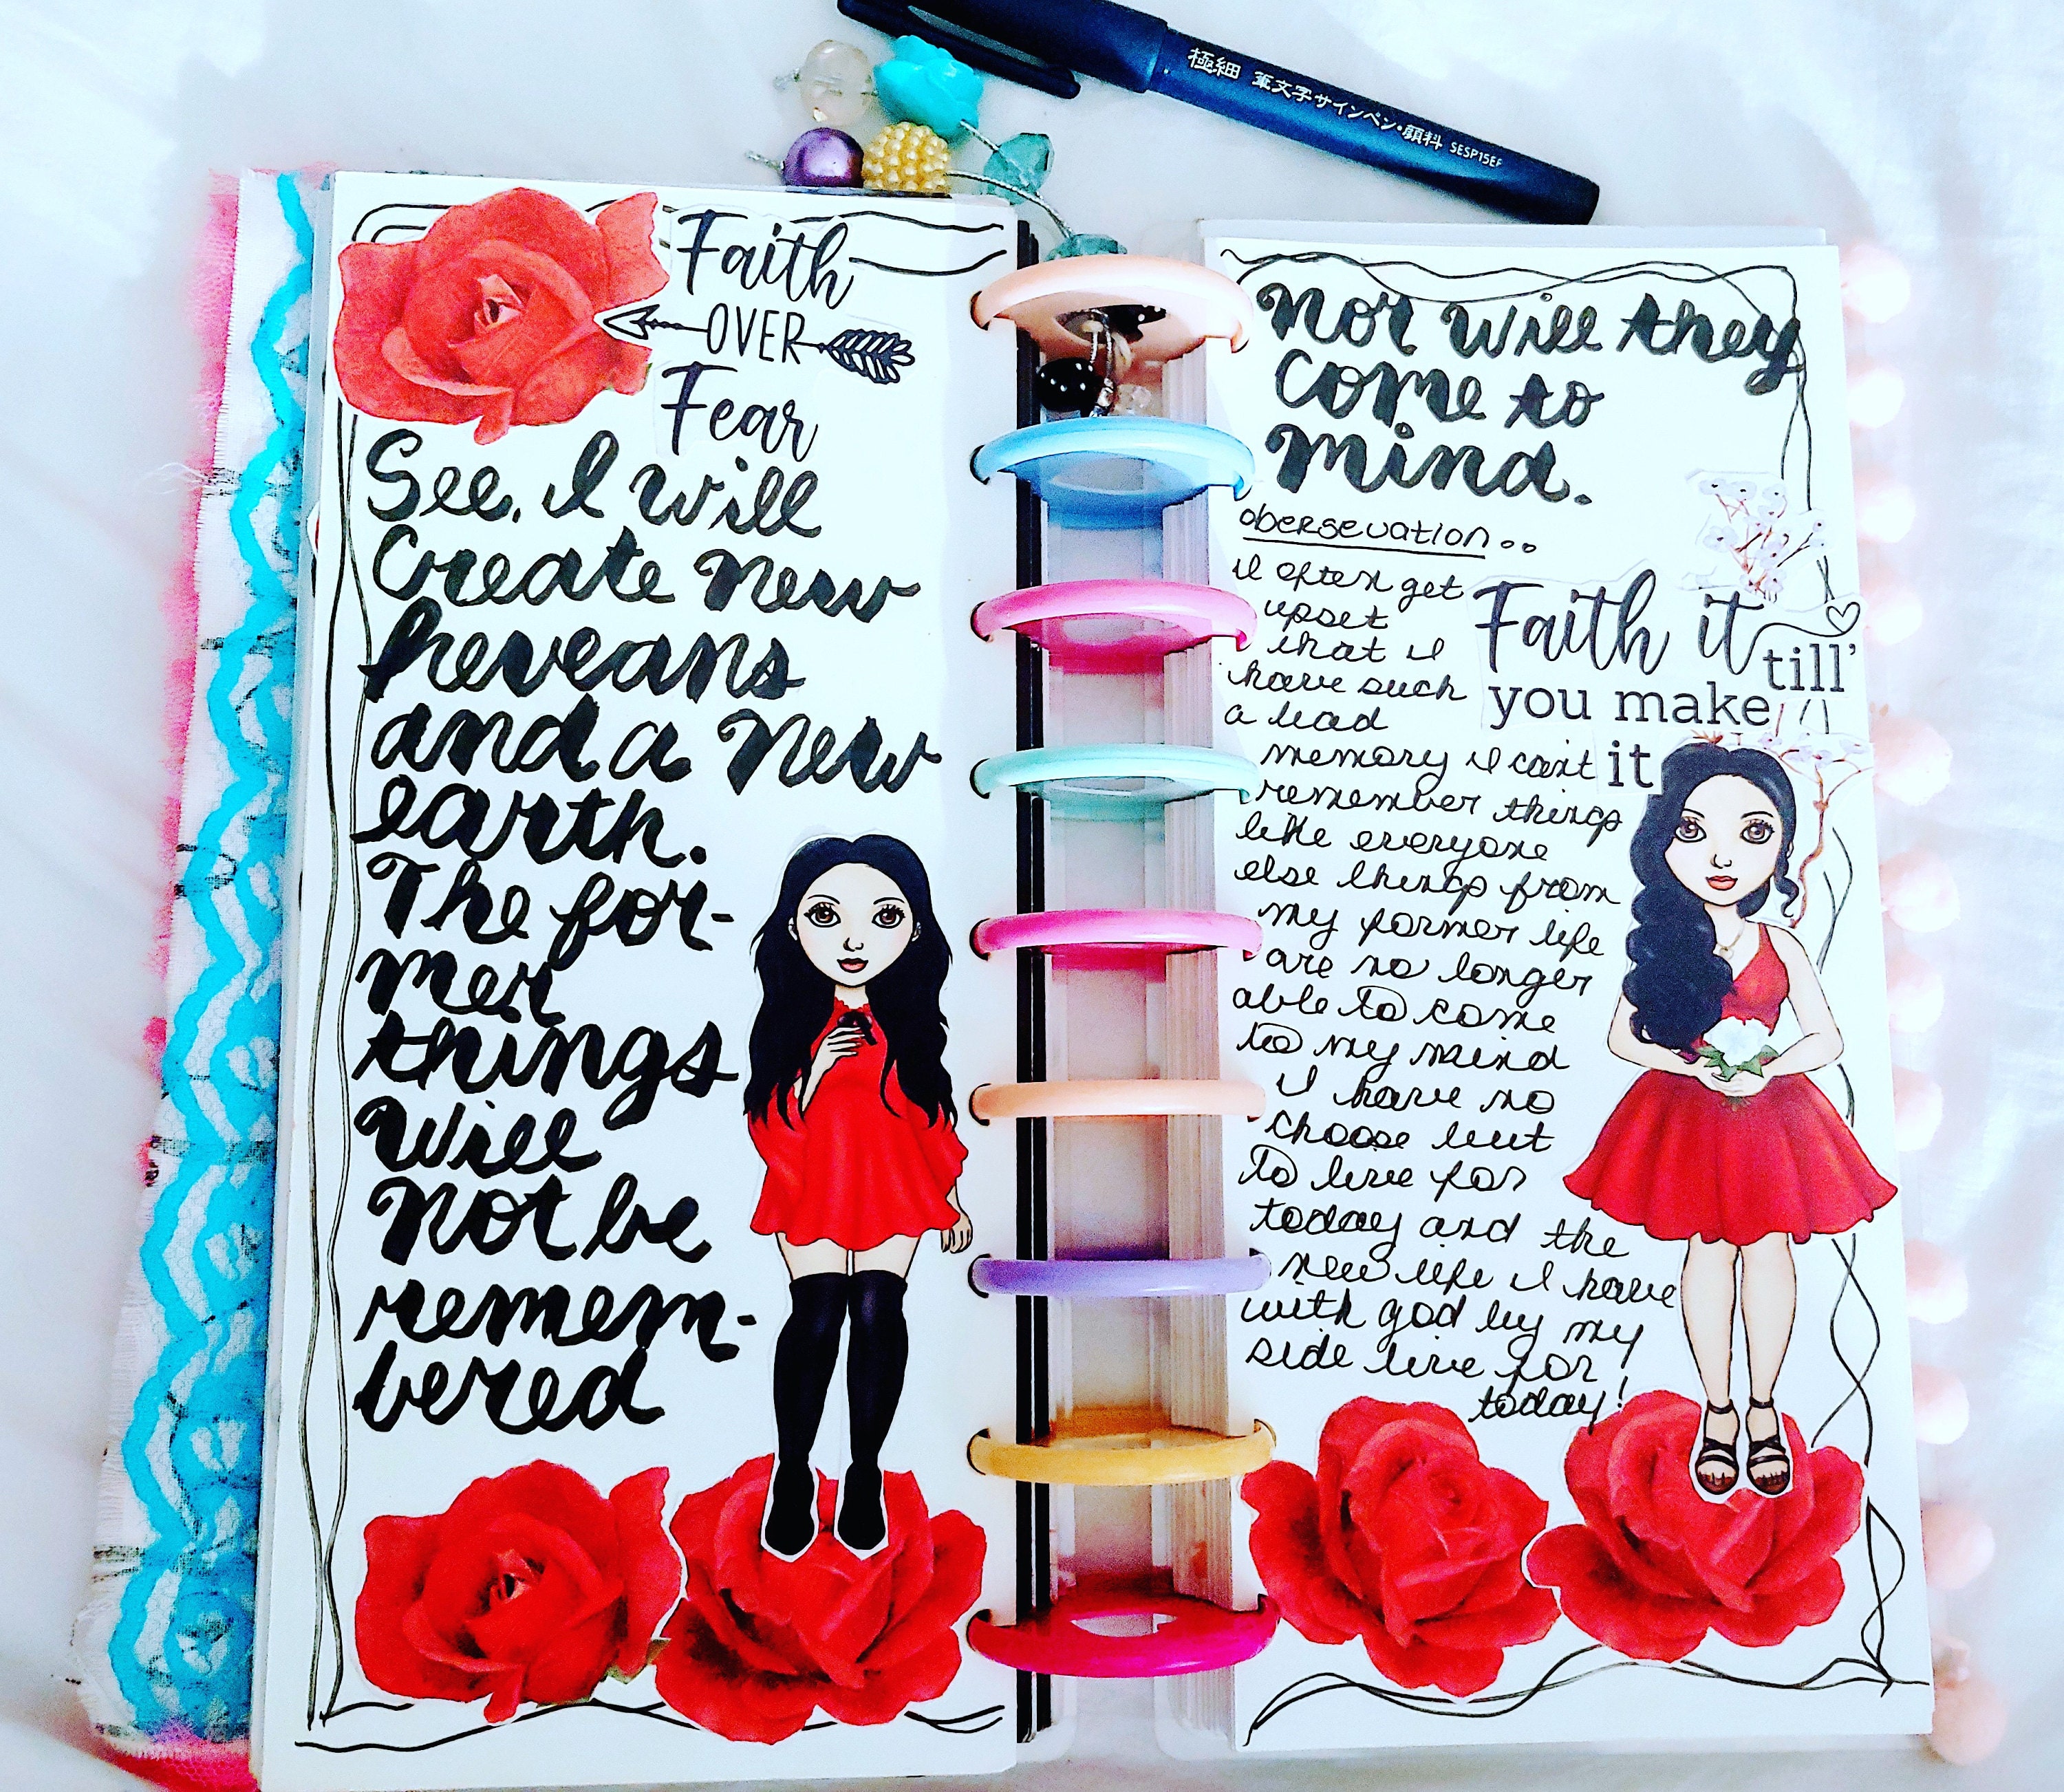 極細 筆文字サインペン・顔料 SESP15EF
Faith
OVER
Fear
See, I will
Create new
heveans
and a new
earth.
The for-
mer
things
will
not be
remem-
bered
nor will they
come to
mind.
obersevation..
I often get
upset
that I
have such
a bad
memory I can't
remember things
like everyone
else things from
my former life
are no longer
able to come
to my mind
I have no
choose but
to live for
today and the
new life I have
with god by my
side live for
today!
Faith it
till'
you make
it